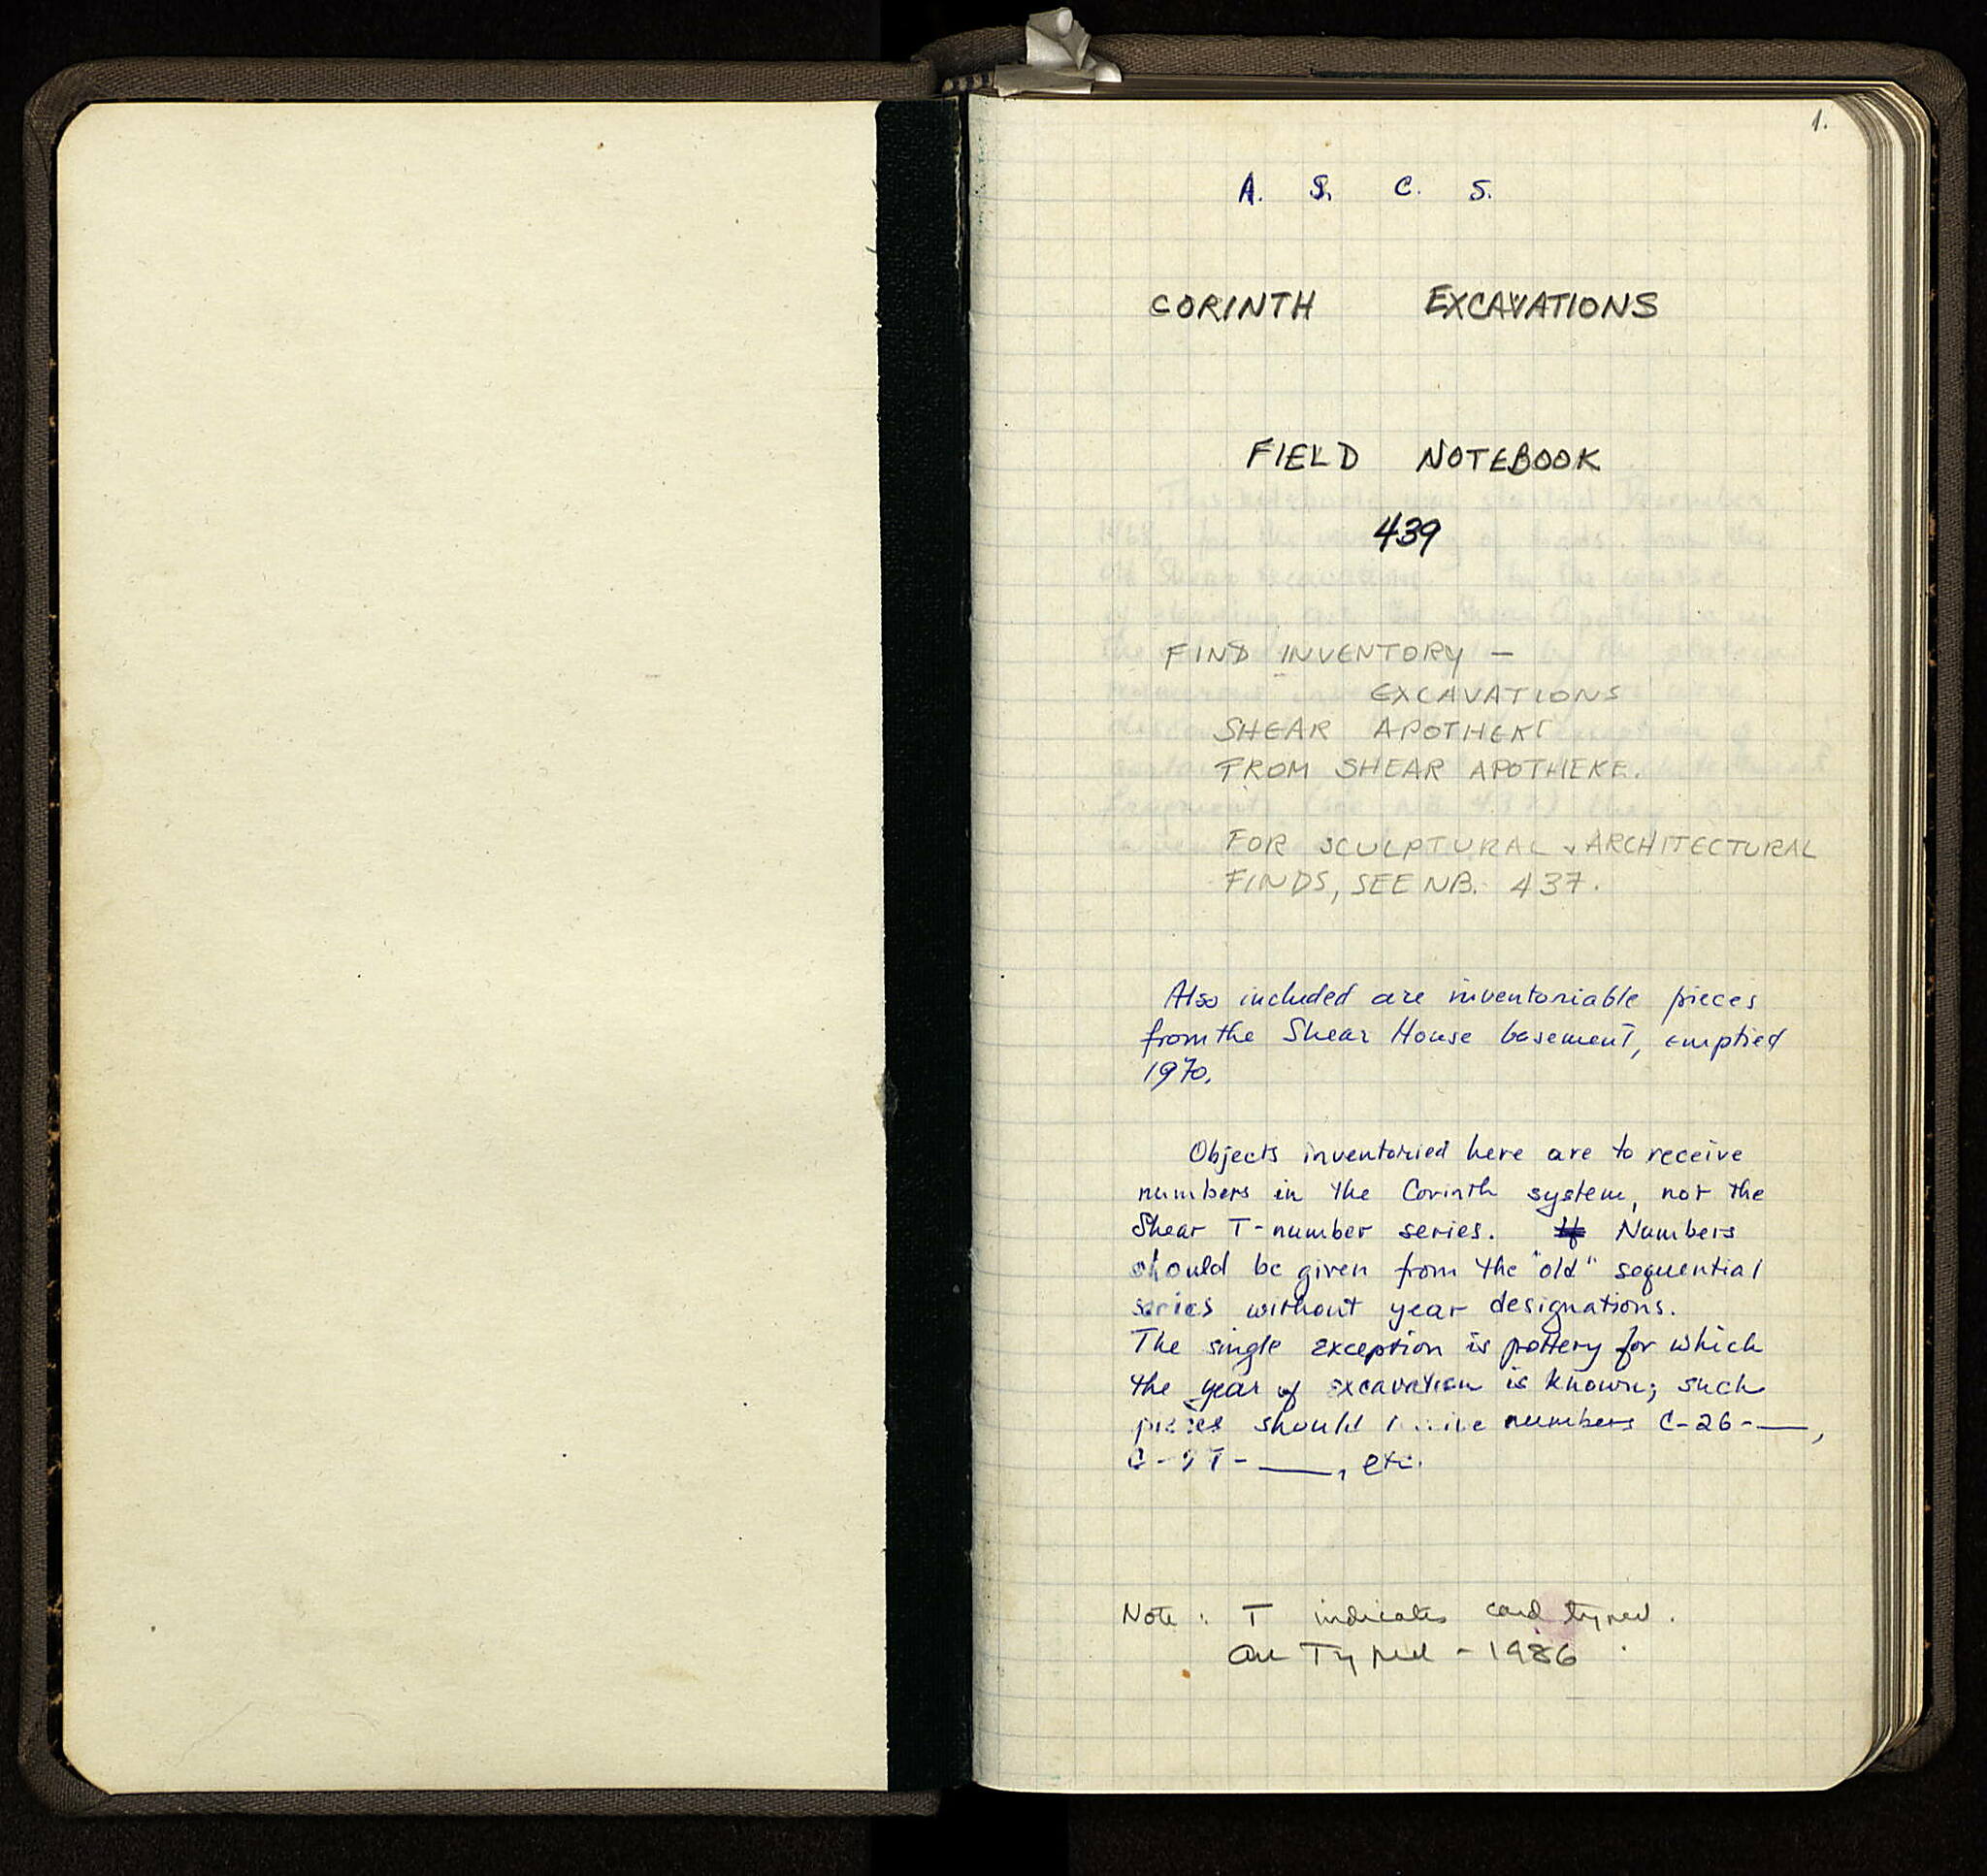 1.
A. S. C. S.
CORINTH EXCAVATIONS
FIELD NOTEBOOK
439
FIND INVENTORY —
EXCAVATIONS
SHEAR APOTHEKE
FROM SHEAR APOTHEKE.
FOR SCULPTURAL & ARCHITECTURAL
FINDS, SEE NB. 437.
Also included are inventoriable pieces
from the Shear House basement, emptied
1970.
Objects inventoried here are to receive
numbers in the Corinth system, not the
Shear T-number series. Numbers
should be given from the "old" sequential
series without year designations.
The single exception is pottery for which
the year of excavation is known; such
pieces should receive numbers C-26-___,
C-27-___, etc.
Note: T indicates card typed.
All Typed - 1986